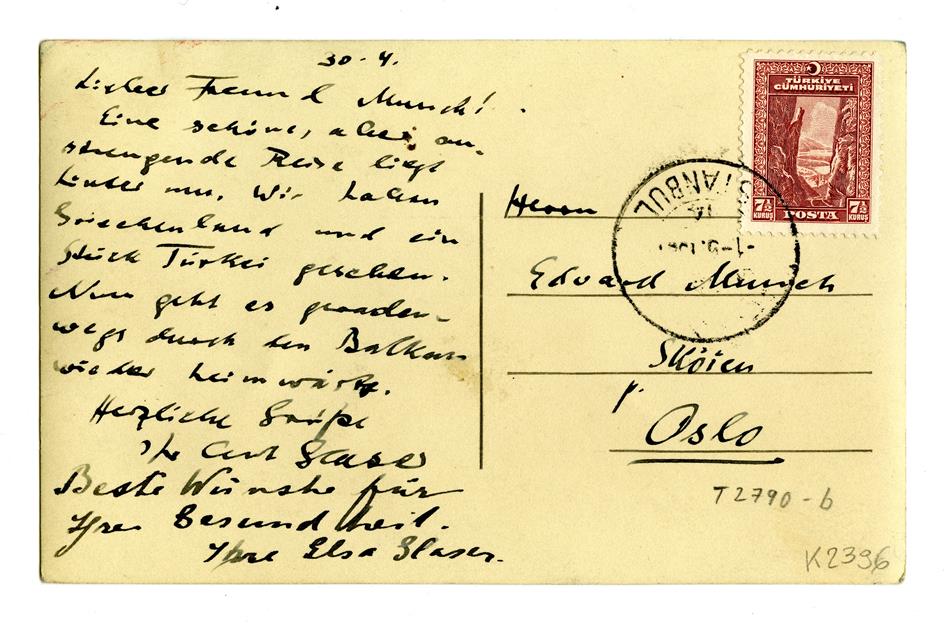 30·4.
Lieber Freund Munch!
Eine schöne, aber an-
strengende Reise liegt
hinter uns. Wir haben
Griechenland und ein
Stück Türkei gesehen.
Nun geht es geraden-
wegs durch den Balkan
wieder heimwärts.
Herzliche Grüße
Ihr Curt Glaser
Beste Wünsche für
Ihre Gesundheit.
Ihre Elsa Glaser.
TÜRKİYE
CÜMHURİYETİ
7½ KURUŞ
POSTA
7½ KURUŞ
İSTANBUL
Herrn
Edvard Munch
Sköien
p.
Oslo
T2790-b
K2396